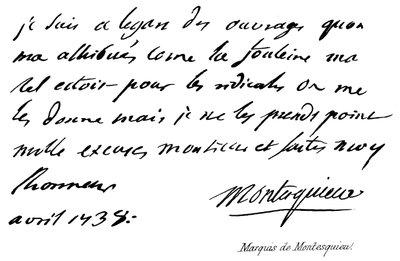 je suis a legard des ouvrages quon
ma attribués come la fonteine ma
tel estoit pour les ridicules on me
les donne mais je ne les prends point
mille excuses monsieur et faites moy
lhonneur
avril 1738:
Montesquieu
Marquis de Montesquieu.